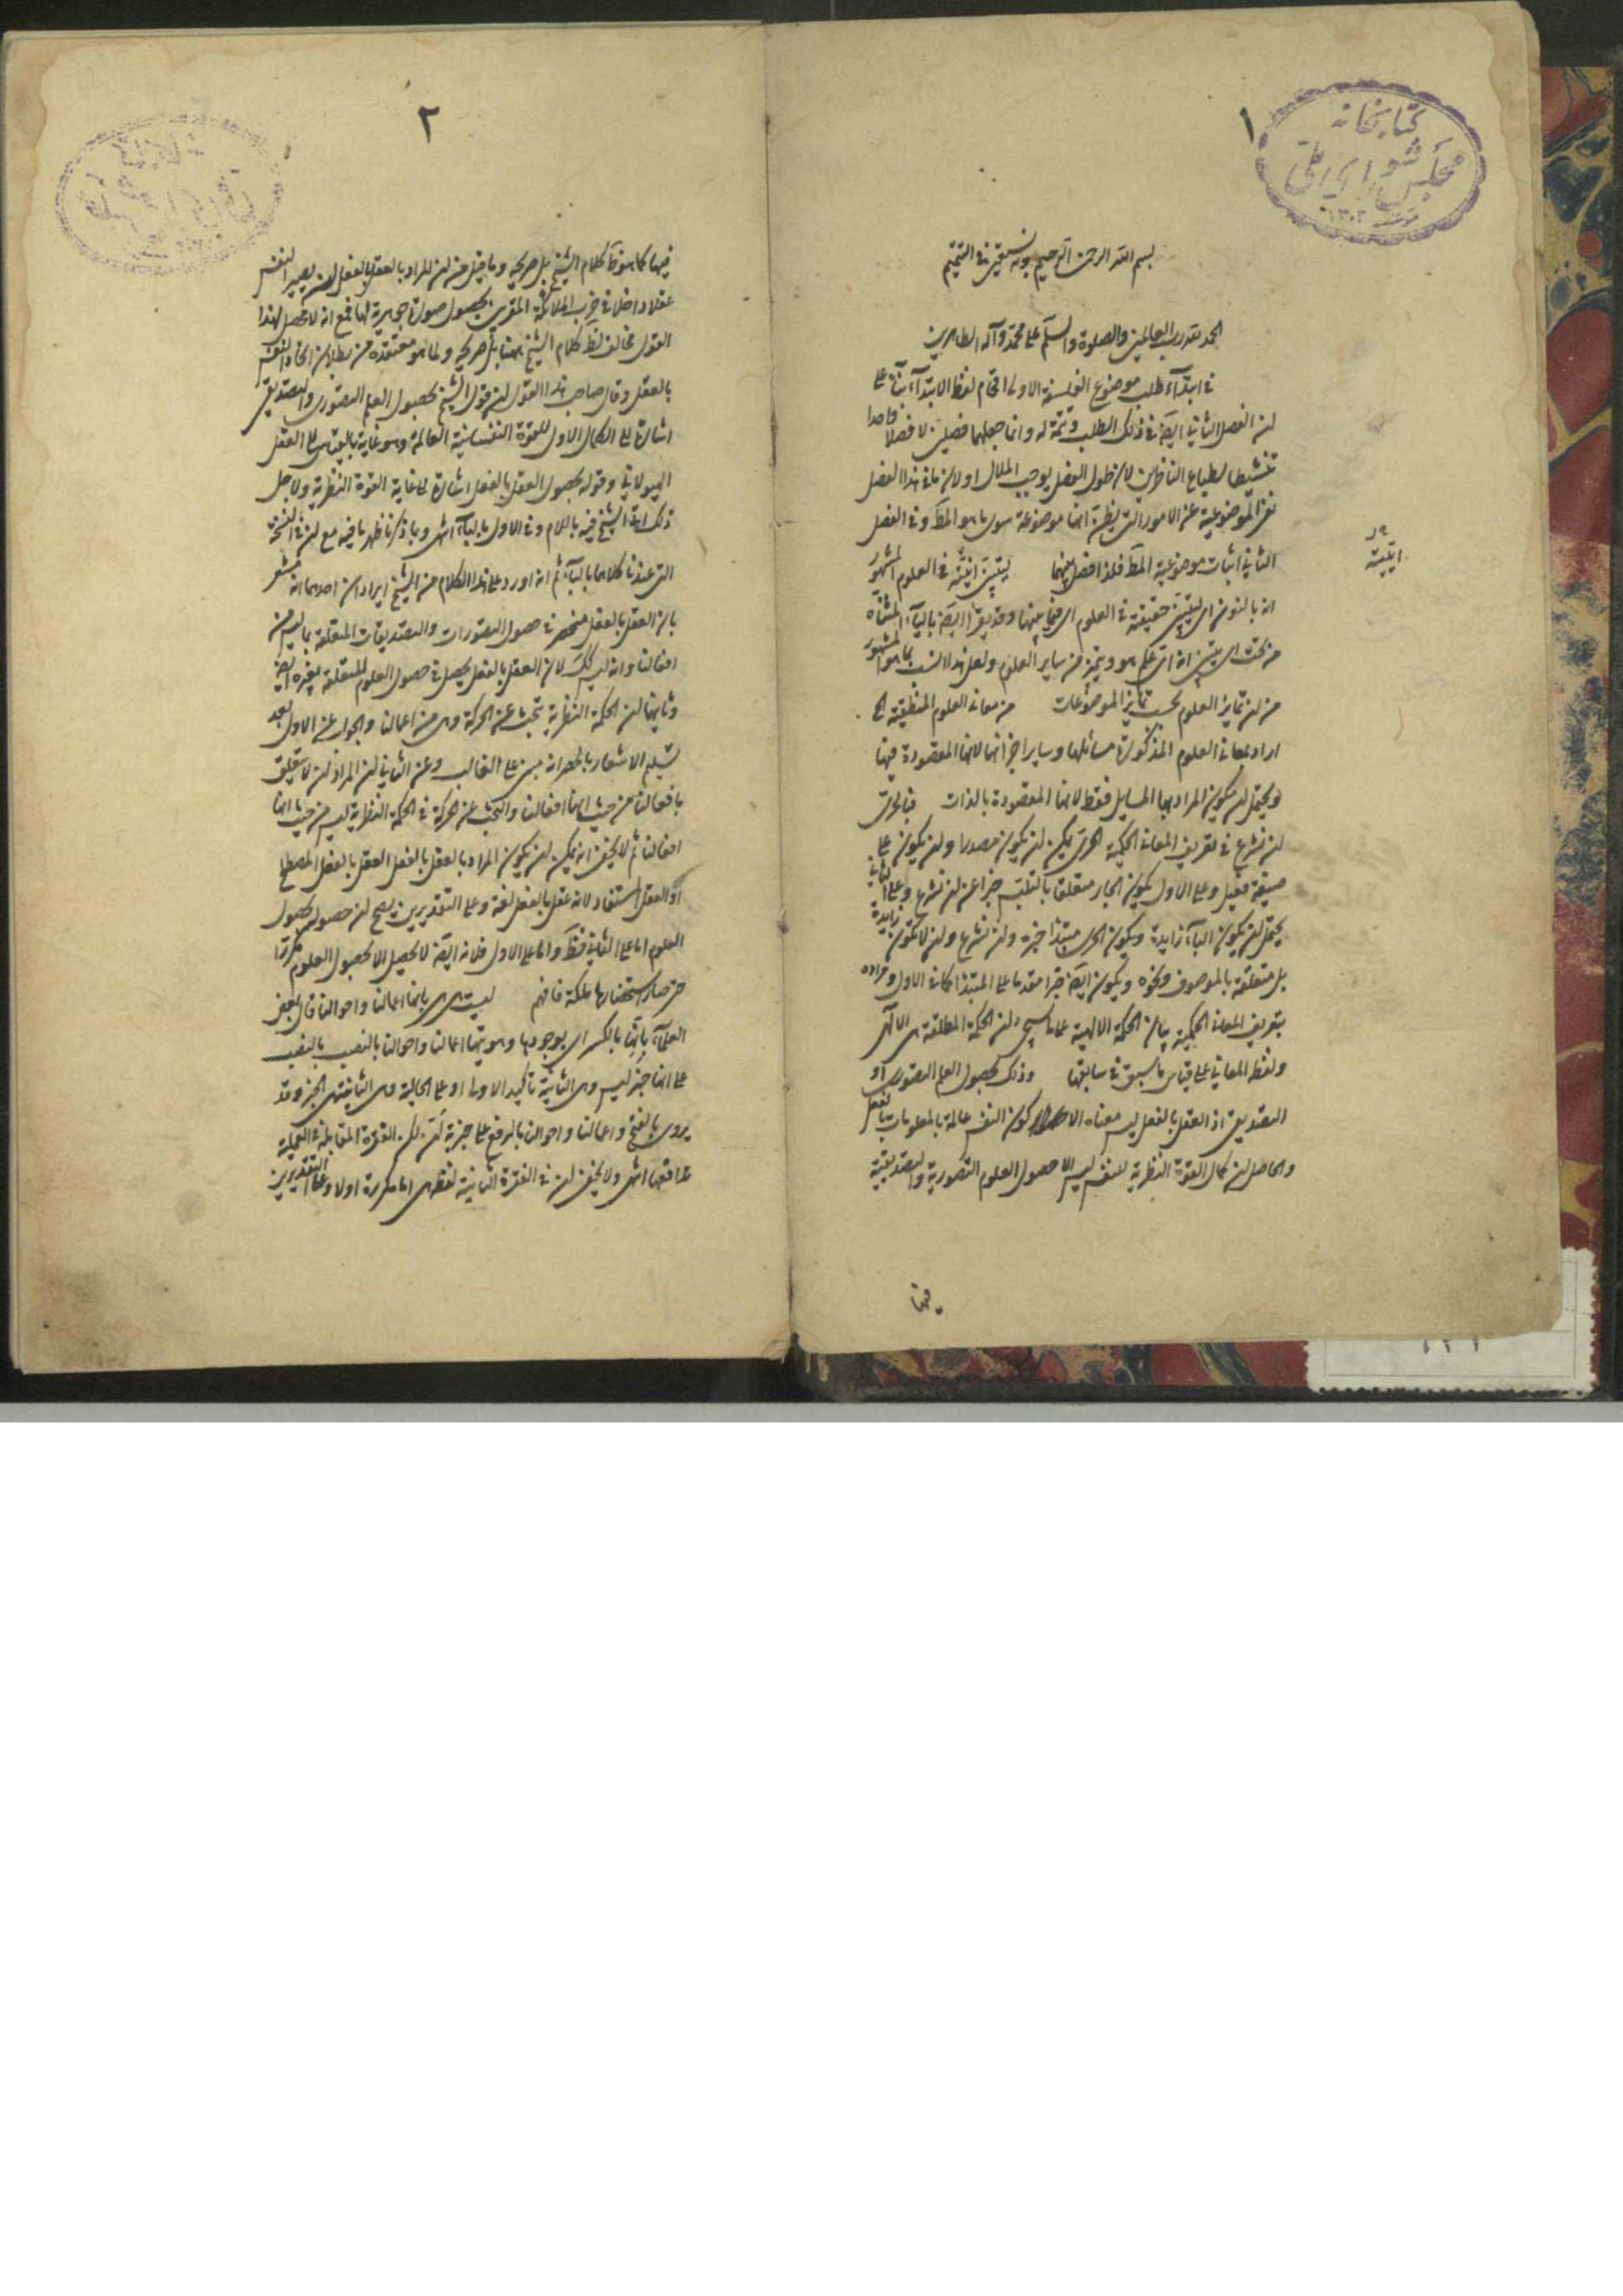 ١
كتابخانه
مجلس شورای ملی
١٣٠٢
بسم الله الرحمن الرحيم وبه نستعين في التتميم
الحمد لله رب العالمين والصلوة والسلم على محمد وآله الطاهرين
في ابتداء طلب موضوع الفلسفة الاولى اقحام لفظ الابتداء بناء على
ان الفصل الثاني ايضا في ذلك الطلب وتتمة له وانما جعلهما فصلين لا فصلا واحدا
تنشيطا لطباع الناظرين لان طول الفصل يوجب الملال او لان ما في هذا الفصل
نفي الموضوعية عن الامور التي يظن انها موضوعة سوى ما هو المط وفي الفصل
الثاني اثبات موضوعية المط فلذا فصل بينهما ليتبين انيته في العلوم المشهور
انه بالنون اى ليتبين حقيقته في العلوم اى فيما بينها وقد يقرا ايضا بالياء المثناه
من تحت اى يتبين انه اى علم هو ويتميز من ساير العلوم ولعل هذا انسب بما هو المشهور
من ان تمايز العلوم بحسب تمايز الموضوعات من معانى العلوم المنطقية الخ
اراد بمعانى العلوم المذكورة مسائلها وساير اجزائها لانها المقصودة فيها
ويحتمل ان يكون المراد بها المسايل فقط لانها المقصودة بالذات فبالحرى
ان نشرع في تعريف المعانى الحكمية الحرى يمكن ان يكون مصدرا وان يكون على
صيغة فعيل وعلى الاول يكون الجار متعلقا بالتلبس خبرا عن ان نشرع وعلى الثاني
يحتمل ان يكون الباء زايدة ويكون الحرى مبتدا خبره وان نشرع وان لا تكون زايدة
بل متعلقة بالموصوف ونحوه ويكون ايضا خبرا مقدما على المبتدا كما في الاول ومراده
بتعريف المعانى الحكمية بيان الحكمة الالهية على ما سيجئ ان الحكمة المطلقة هى الالهى
ولفظ المعانى على قياس ما سبق في سابقها وذلك بحصول العلم التصورى او
التصديقى اذ العقل بالفعل ليس معناه الا كون النفس عالمة بالمعلومات بالفعل
والحاصل ان كمال القوة النظرية للنفس ليس الا حصول العلوم التصورية والتصديقية
فيها
انيته
٢
فيها كما هو ظ كلام الشيخ بل صريحه وما قيل من ان المراد بالعقل بالفعل ان يصير النفس
عقلا داخلا في حزب الملائكة المقربين بحصول صورة جوهرية لها فمع انه لا محصل لهذا
القول مخالف لظ كلام الشيخ ههنا بل صريحه ولما هو معتقده من بطلان اتحاد النفس
بالعقل وقال صاحب هذا القول ان قول الشيخ بحصول العلم التصورى والتصديقى
اشارة الى الكمال الاول للقوة النفسانية العالمة وهو غاية بالقياس الى العقل
الهيولاني وقوله بحصول العقل بالفعل اشارة الى غاية القوة النظرية ولاجل
ذلك اتى الشيخ فيه باللام وفي الاول بالباء انتهى وبما ذكرنا ظهر ما فيه مع ان في النسخة
التى عندنا كلاهما بالباء ثم انه اورد على هذا الكلام من الشيخ ايرادان احدهما انه مشعر
بان العقل بالفعل منحصر في حصول التصورات والتصديقات المتعلقة بما ليس من
افعالنا وانه ليس كك لان العقل بالفعل يحصل في حصول العلوم المتعلقة بغيره ايضا
وثانيهما ان الحكمة النظرية تبحث عن الحركة وهى من اعمالنا والجواب عن الاول بعد
تسليم الاشعار بالحصر انه مبنى على الغالب وعن الثاني ان المراد ان لا يتعلق
بافعالنا من حيث انها افعالنا والبحث عن الحركة في الحكمة النظرية ليس من حيث انها
افعالنا ثم لا يخفى انه يمكن ان يكون المراد بالعقل بالفعل العقل بالفعل المصطلح
او العقل المستفاد لانه عقل بالفعل لغة وعلى التقديرين يصح ان حصوله بحصول
العلوم اما على الثاني فظ واما على الاول فلانه ايضا لا يحصل الا بحصول العلوم مكررا
حتى صار استحضارها ملكة فافهم ليست هى هى بانها اعمالنا واحوالنا قال بعض
العلماء بانها بالكسر اى بوجودها وهويتها اعمالنا واحوالنا بالنصب بالنصب
على انها خبر ليس وهى الثانية تاكيد الاولى او على الحالية وهى الثانية هى الخبر وقد
يروى بالفتح واعمالنا واحوالنا بالرفع على خبرية ان لكن الفقرة المقابلة في العملية
لا توافقها انتهى ولا يخفى ان في الفقرة الثانية لفظ هى اما مكررة اولا وعلى التقديرين